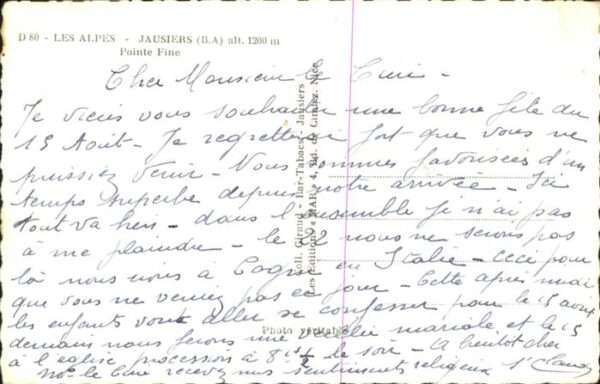 D 80 - LES ALPES - JAUSIERS (B.A) alt. 1200 m
Pointe Fine
Cher Monsieur le Curé -
Je viens vous souhaiter une bonne fête du
15 Août - Je regrette fort que vous ne
puissiez venir - Nous sommes favorisées d'un
temps superbe depuis notre arrivée - Ici
tout va bien - dans l'ensemble je n'ai pas
à me plaindre - le 22 nous ne serons pas
là nous irons à en Italie - Ceci pour
que vous ne veniez pas ce jour - Cette après midi
les enfants vont aller se confesser pour le 15 août
demain nous ferons une veillée mariale et le 15
à l'église procession à 8h ½ le soir - A bientôt cher
Mr le Curé recevez nos sentiments religieux
Coll. Giraud - Bar-Tabacs - Jausiers
Les Editions « MAR » 4, Bd. de Cimiez, Nice
Photo véritable